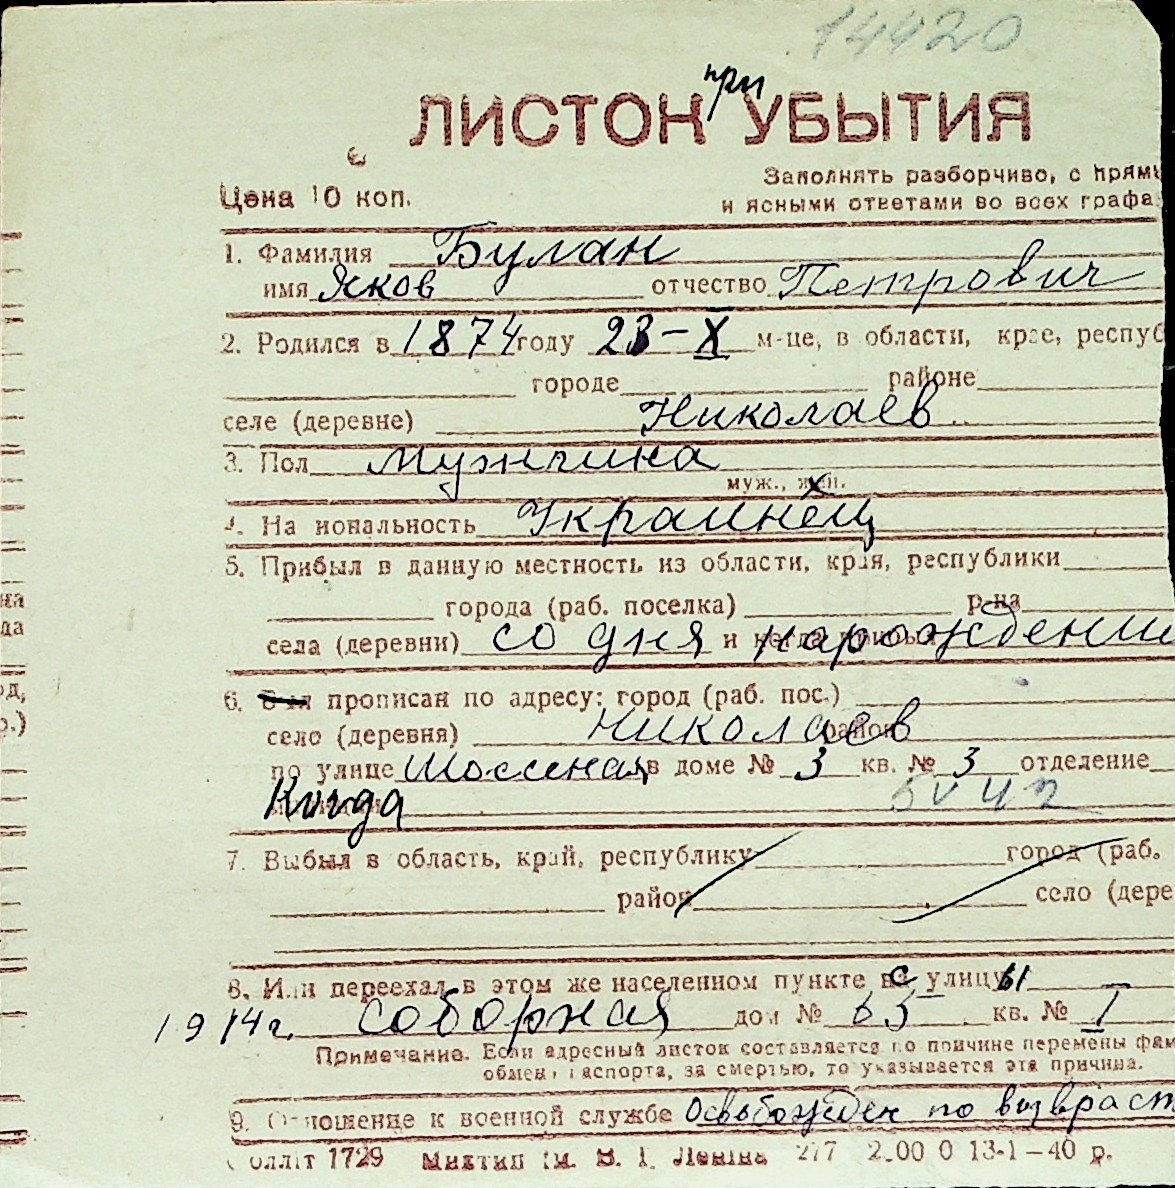 14420
при
ЛИСТОК УБЫТИЯ
Цена 10 коп.
Заполнять разборчиво, с прямы
и ясными ответами во всех графа
1. Фамилия Булан
имя Яков отчество Петрович
2. Родился в 1874 году 23-X м-це, в области, крае, респуб
городе районе
селе (деревне) Николаев
3. Пол мужчина
муж., жен.
4. На иональность Украинец
5. Прибыл в данную местность из области, края, республики
города (раб. поселка) р-на
села (деревни) со дня и нарождени
6. прописан по адресу: город (раб. пос.)
село (деревня) Николаев район
по улице Шоссеная в доме № 3 кв. № 3 отделение
Когда
7. Выбыл в область, край, республику город (раб.
район село (дере
8. Или переехал в этом же населенном пункте с улицы
1914 г. Соборная дом № 65 кв. № 1
Примечание. Если адресный листок составляется по причине перемены фам
обмен паспорта, за смертью, то указывается эта причина.
9. Отношение к военной службе Освобожден по возраст
оллiт 1729 Миктип iм. В. I. Ленiна 277 2.00 0 13-1-40 р.